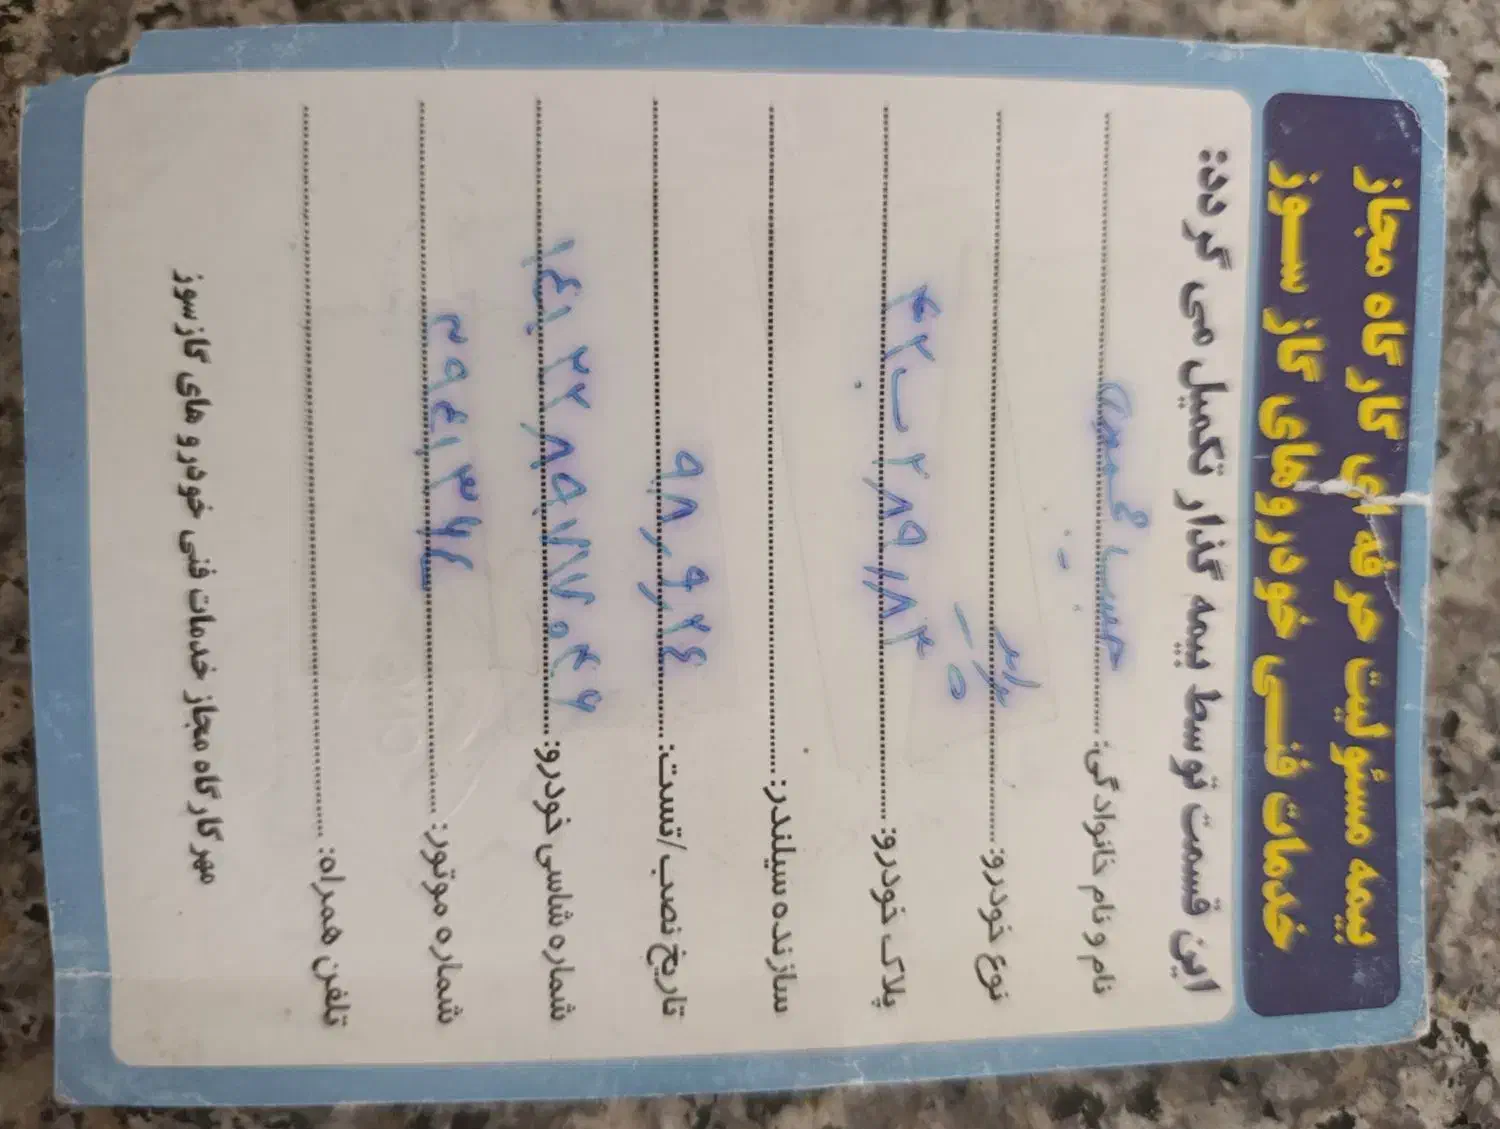 بیمه مسئولیت حرفه ای کارگاه مجاز
خدمات فنــی خودروهای گاز ســوز
این قسمت توسط بیمه گذار تکمیل می گردد:
نام و نام خانوادگی:
نوع خودرو: پراید
پلاک خودرو: ۴۲ ب ۲۸۹ / ۸۳
سازنده سیلندر:
تاریخ نصب/تست: ۹۸,۹,۲۴
شماره شاسی خودرو: ۱۴۱۲۲۸۹۷۷۰۴۶
شماره موتور: ۳۹۴۱۳۶۴
تلفن همراه:
مهر کارگاه مجاز خدمات فنی خودرو های گاز سوز